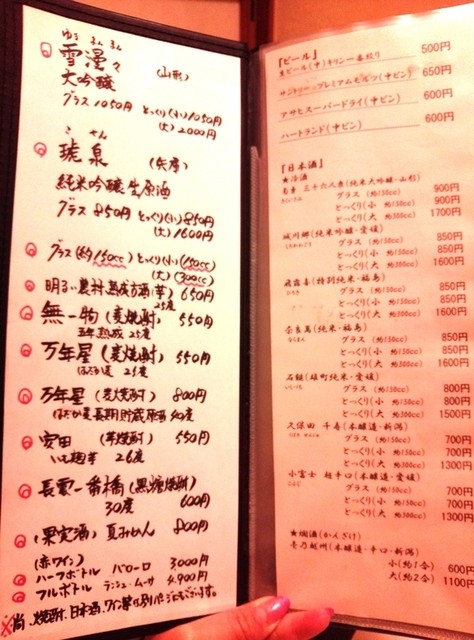 ゆうまんまん
雪漫々 (山形)
大吟醸
グラス1050円 とっくり(小)1050円
(大)2000円
こ せん
琥泉 (兵庫)
純米吟醸生原酒
グラス850円 とっくり(小)850円
(大)1600円
グラス(約150cc) とっくり(小)(150cc)
(大)(300cc)
明るい農村熟成古酒(芋) 650円
25度
無一物(麦焼酎) 550円
五年熟成 25度
万年星(麦焼酎) 550円
はだか麦 25度
万年星(麦焼酎) 800円
はだか麦長期貯蔵原酒40度
宮田 (芋焼酎) 550円
いも麹芋 26度
長雲一番橋(黒糖焼酎)
30度 600円
(果実酒) 夏みかん 800円
(赤ワイン)
ハーフボトル バローロ 3000円
フルボトル ラシュ・ムーサ 4.900円
※尚、焼酎、日本酒、ワイン等は別ページもございます。
「ビール」
生ビール(中)キリン一番絞り 500円
サントリープレミアムモルツ(中ビン) 650円
アサヒスーパードライ(中ビン) 600円
ハートランド(中ビン) 600円
「日本酒」
★冷酒
三十六人衆(純米大吟醸・山形)
グラス (約150cc) 900円
とっくり(小 約150cc) 900円
とっくり(大 約300cc) 1700円
城川郷(純米吟醸・愛媛)
グラス (約150cc) 850円
とっくり(小 約150cc) 850円
とっくり(大 約300cc) 1600円
飛露喜(特別純米・福島)
ひろき グラス (約150cc) 850円
とっくり(小 約150cc) 850円
とっくり(大 約300cc) 1600円
奈良萬(純米・福島)
ならまん グラス (約150cc) 850円
とっくり(小 約150cc) 850円
とっくり(大 約300cc) 1600円
石鎚(雄町純米・愛媛)
いしづち グラス (約150cc) 800円
とっくり(小 約150cc) 800円
とっくり(大 約300cc) 1500円
久保田 千寿(本醸造・新潟)
グラス (約150cc) 700円
とっくり(小 約150cc) 700円
とっくり(大 約300cc) 1300円
小富士 超辛口(本醸造・愛媛)
グラス (約150cc) 700円
とっくり(小 約150cc) 700円
とっくり(大 約300cc) 1300円
★燗酒(かんざけ)
壱乃越州(本醸造・辛口・新潟)
小(約1合) 600円
大(約2合) 1100円